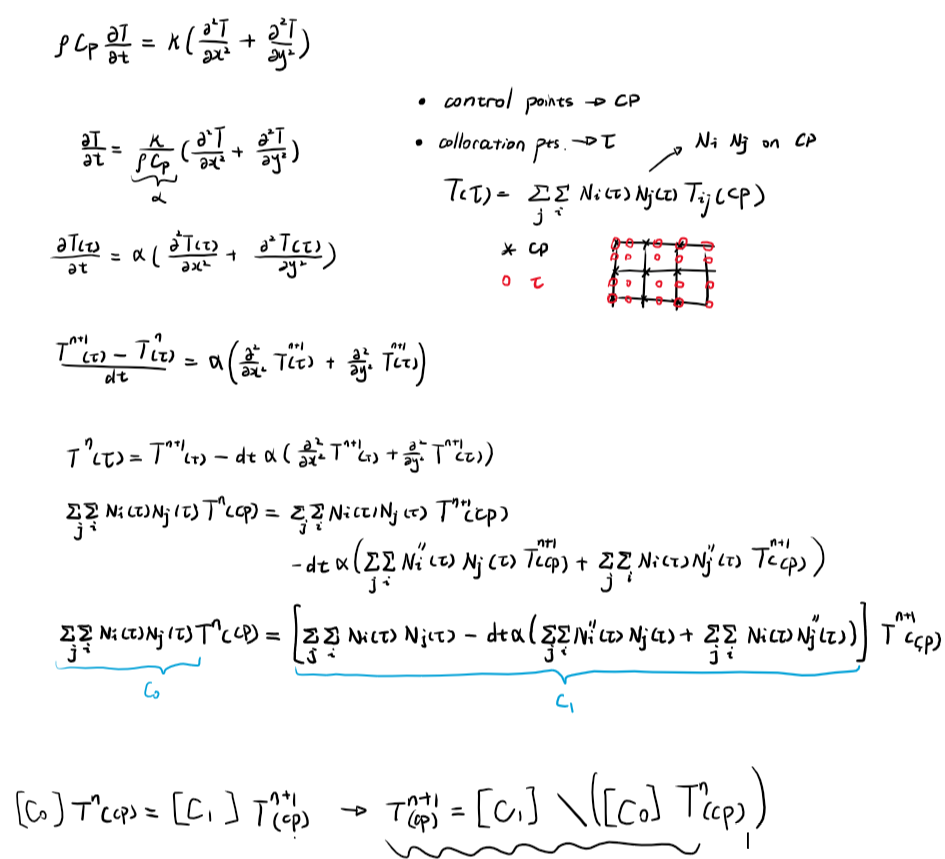 ρ Cp ∂T/∂t = K(∂²T/∂x² + ∂²T/∂y²)
• control points → CP
∂T/∂t = K/(ρ Cp) (∂²T/∂x² + ∂²T/∂y²)
α
• collocation pts. → τ
Ni Nj on CP
T(τ) = Σj Σi Ni(τ) Nj(τ) Tij(CP)
∂T(τ)/∂t = α(∂²T(τ)/∂x² + ∂²T(τ)/∂y²)
* CP
o τ
(Tⁿ⁺¹(τ) − Tⁿ(τ))/dt = α(∂²/∂x² Tⁿ⁺¹(τ) + ∂²/∂y² Tⁿ⁺¹(τ))
Tⁿ(τ) = Tⁿ⁺¹(τ) − dt α(∂²/∂x² Tⁿ⁺¹(τ) + ∂²/∂y² Tⁿ⁺¹(τ))
Σj Σi Ni(τ)Nj(τ) Tⁿ(CP) = Σj Σi Ni(τ)Nj(τ) Tⁿ⁺¹(CP)
− dt α(Σj Σi Ni''(τ) Nj(τ) Tⁿ⁺¹(CP) + Σj Σi Ni(τ)Nj''(τ) Tⁿ⁺¹(CP))
Σj Σi Ni(τ)Nj(τ) Tⁿ(CP) = [Σj Σi Ni(τ) Nj(τ) − dt α(Σj Σi Ni''(τ) Nj(τ) + Σj Σi Ni(τ) Nj''(τ))] Tⁿ⁺¹(CP)
C₀
C₁
[C₀] Tⁿ(CP) = [C₁] Tⁿ⁺¹(CP) → Tⁿ⁺¹(CP) = [C₁] \ ([C₀] Tⁿ(CP))